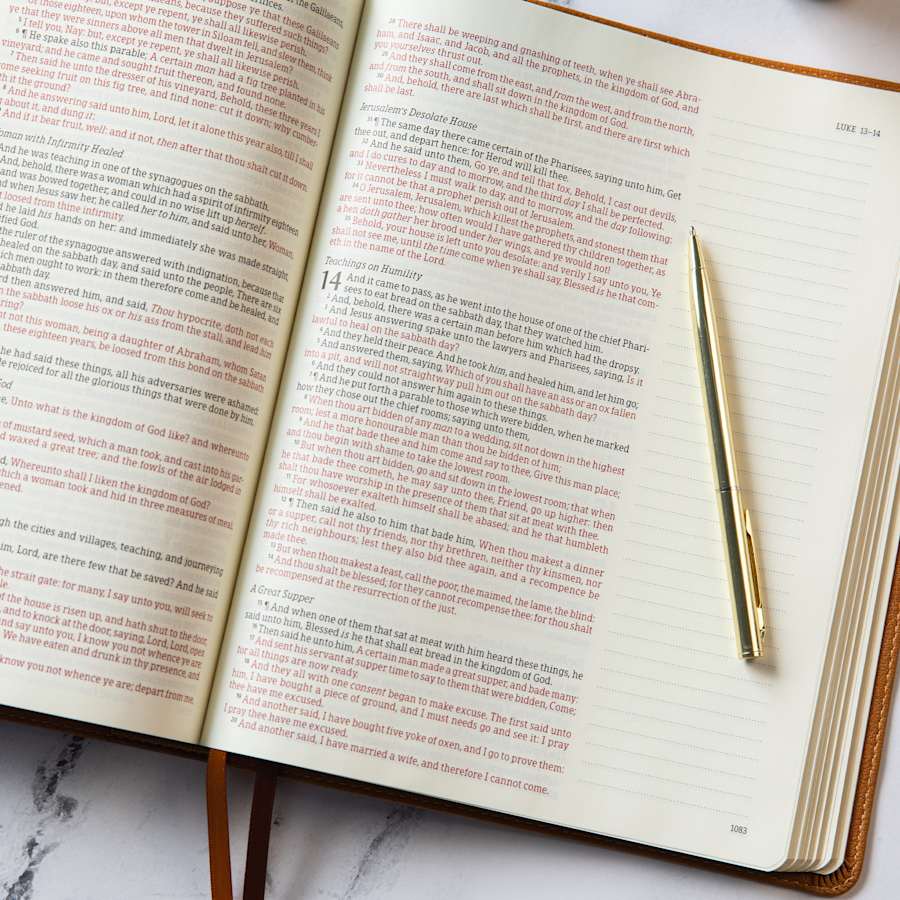 suppose ye that these Galilaeans
of the Galilaeans, because they suffered such things?
except ye repent, ye shall all likewise perish.
Of those eighteen, upon whom the tower in Siloam fell, and slew them, think
ye that they were sinners above all men that dwelt in Jerusalem?
5 I tell you, Nay: but, except ye repent, ye shall all likewise perish.
6 ¶ He spake also this parable; A certain man had a fig tree planted in his
vineyard; and he came and sought fruit thereon, and found none.
7 Then said he unto the dresser of his vineyard, Behold, these three years I
come seeking fruit on this fig tree, and find none: cut it down; why cumber-
eth it the ground?
8 And he answering said unto him, Lord, let it alone this year also, till I shall
about it, and dung it:
9 And if it bear fruit, well: and if not, then after that thou shalt cut it down.
Woman with Infirmity Healed
And he was teaching in one of the synagogues on the sabbath.
And, behold, there was a woman which had a spirit of infirmity eighteen
and was bowed together, and could in no wise lift up herself.
And when Jesus saw her, he called her to him, and said unto her, Woman,
loosed from thine infirmity.
he laid his hands on her: and immediately she was made straight,
glorified God.
the ruler of the synagogue answered with indignation, because that
healed on the sabbath day, and said unto the people, There are six
which men ought to work: in them therefore come and be healed, and
sabbath day.
Lord then answered him, and said, Thou hypocrite, doth not each
on the sabbath loose his ox or his ass from the stall, and lead him
watering?
ought not this woman, being a daughter of Abraham, whom Satan
these eighteen years, be loosed from this bond on the sabbath
he had said these things, all his adversaries were ashamed:
people rejoiced for all the glorious things that were done by him.
God
Unto what is the kingdom of God like? and whereunto
of mustard seed, which a man took, and cast into his gar-
and waxed a great tree; and the fowls of the air lodged in
Whereunto shall I liken the kingdom of God?
which a woman took and hid in three measures of meal,
through the cities and villages, teaching, and journeying
him, Lord, are there few that be saved? And he said
the strait gate: for many, I say unto you, will seek to
of the house is risen up, and hath shut to the door,
and to knock at the door, saying, Lord, Lord, open
and say unto you, I know you not whence ye are:
We have eaten and drunk in thy presence, and
know you not whence ye are; depart from me,
LUKE 13–14
28 There shall be weeping and gnashing of teeth, when ye shall see Abra-
ham, and Isaac, and Jacob, and all the prophets, in the kingdom of God, and
you yourselves thrust out.
29 And they shall come from the east, and from the west, and from the north,
and from the south, and shall sit down in the kingdom of God.
30 And, behold, there are last which shall be first, and there are first which
shall be last.
Jerusalem's Desolate House
31 ¶ The same day there came certain of the Pharisees, saying unto him, Get
thee out, and depart hence: for Herod will kill thee.
32 And he said unto them, Go ye, and tell that fox, Behold, I cast out devils,
and I do cures to day and to morrow, and the third day I shall be perfected.
33 Nevertheless I must walk to day, and to morrow, and the day following:
for it cannot be that a prophet perish out of Jerusalem.
34 O Jerusalem, Jerusalem, which killest the prophets, and stonest them that
are sent unto thee; how often would I have gathered thy children together, as
a hen doth gather her brood under her wings, and ye would not!
35 Behold, your house is left unto you desolate: and verily I say unto you, Ye
shall not see me, until the time come when ye shall say, Blessed is he that com-
eth in the name of the Lord.
Teachings on Humility
14 And it came to pass, as he went into the house of one of the chief Phari-
sees to eat bread on the sabbath day, that they watched him.
2 And, behold, there was a certain man before him which had the dropsy.
3 And Jesus answering spake unto the lawyers and Pharisees, saying, Is it
lawful to heal on the sabbath day?
4 And they held their peace. And he took him, and healed him, and let him go;
5 And answered them, saying, Which of you shall have an ass or an ox fallen
into a pit, and will not straightway pull him out on the sabbath day?
6 And they could not answer him again to these things.
7 ¶ And he put forth a parable to those which were bidden, when he marked
how they chose out the chief rooms; saying unto them,
8 When thou art bidden of any man to a wedding, sit not down in the highest
room; lest a more honourable man than thou be bidden of him;
9 And he that bade thee and him come and say to thee, Give this man place;
and thou begin with shame to take the lowest room.
10 But when thou art bidden, go and sit down in the lowest room; that when
he that bade thee cometh, he may say unto thee, Friend, go up higher: then
shalt thou have worship in the presence of them that sit at meat with thee.
11 For whosoever exalteth himself shall be abased; and he that humbleth
himself shall be exalted.
12 ¶ Then said he also to him that bade him, When thou makest a dinner
or a supper, call not thy friends, nor thy brethren, neither thy kinsmen, nor
thy rich neighbours; lest they also bid thee again, and a recompence be
made thee.
13 But when thou makest a feast, call the poor, the maimed, the lame, the blind:
14 And thou shalt be blessed; for they cannot recompense thee: for thou shalt
be recompensed at the resurrection of the just.
A Great Supper
15 ¶ And when one of them that sat at meat with him heard these things, he
said unto him, Blessed is he that shall eat bread in the kingdom of God.
16 Then said he unto him, A certain man made a great supper, and bade many:
17 And sent his servant at supper time to say to them that were bidden, Come;
for all things are now ready.
18 And they all with one consent began to make excuse. The first said unto
him, I have bought a piece of ground, and I must needs go and see it: I pray
thee have me excused.
19 And another said, I have bought five yoke of oxen, and I go to prove them:
I pray thee have me excused.
20 And another said, I have married a wife, and therefore I cannot come.
1083